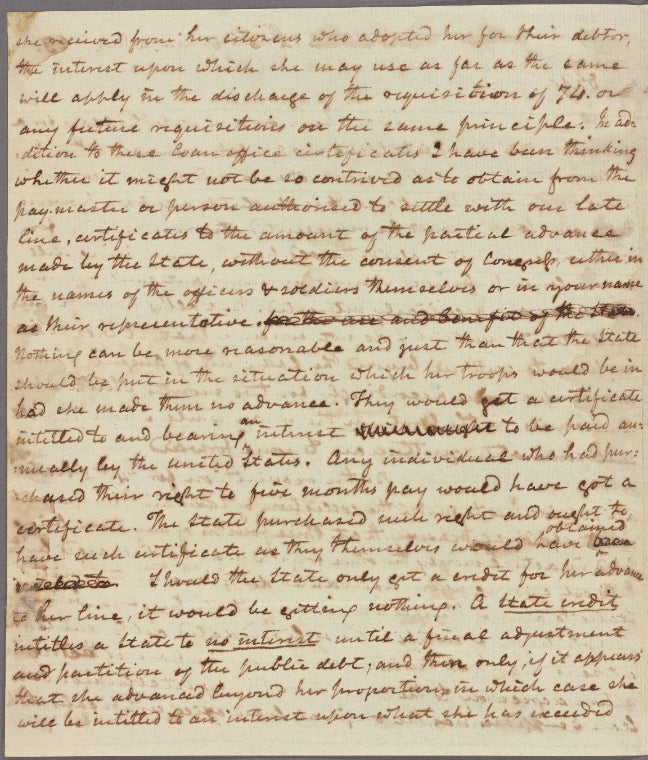 she received from her citizens who adopted her for their debtor,
the interest upon which she may use as far as the same
will apply in the discharge of the requisition of 74. or
any future requisitions on the same principle. In ad-
-dition to these loan office certificates I have been thinking
whether it might not be so contrived as to obtain from the
pay-master or person authorised to settle with our late
line, certificates to the amount of the partial advance
made by the State, without the consent of Congress, either in
the names of the officers & soldiers themselves or in your name
as their representative. for the use and benefit of the State
Nothing can be more reasonable and just than that the State
should be put in the situation which her troops would be in
had she made them no advance. They would get a certificate
intitled to and bearing an interest to be paid an:
:nually by the united States. Any individual who had pur:
:chased their right to five months pay would have got a
certificate. The State purchased such right and ought to
have such certificate as they themselves would have obtained
Should the State only get a credit for her advance
to her line, it would be getting nothing. A state credit
intitles a State to no interest until a final adjustment
and partition of the public debt; and then only, if it appears
that she advanced beyond her proportion, in which case she
will be intitled to an interest upon what she has exceeded